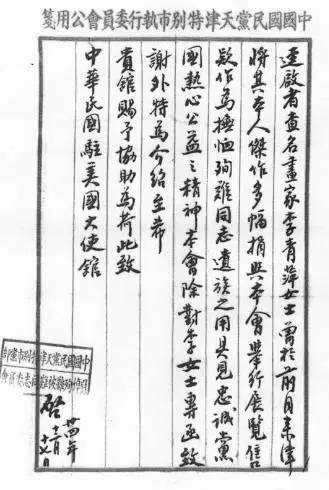 中國國民黨天津特別市執行委員會公用箋
逕啟者查名畫家李青萍女士曾於前月来津
將其本人傑作多幅捐與本會舉行展覽售
欵作為撫恤殉難同志遺族之用具見忠誠黨
國熱心公益之精神本會除對李女士專函致
謝外特為介紹至希
貴館賜予協助為荷此致
中華民國駐美國大使館
中國國民黨天津特別市黨部
委員會
啟
卅四年
十七日